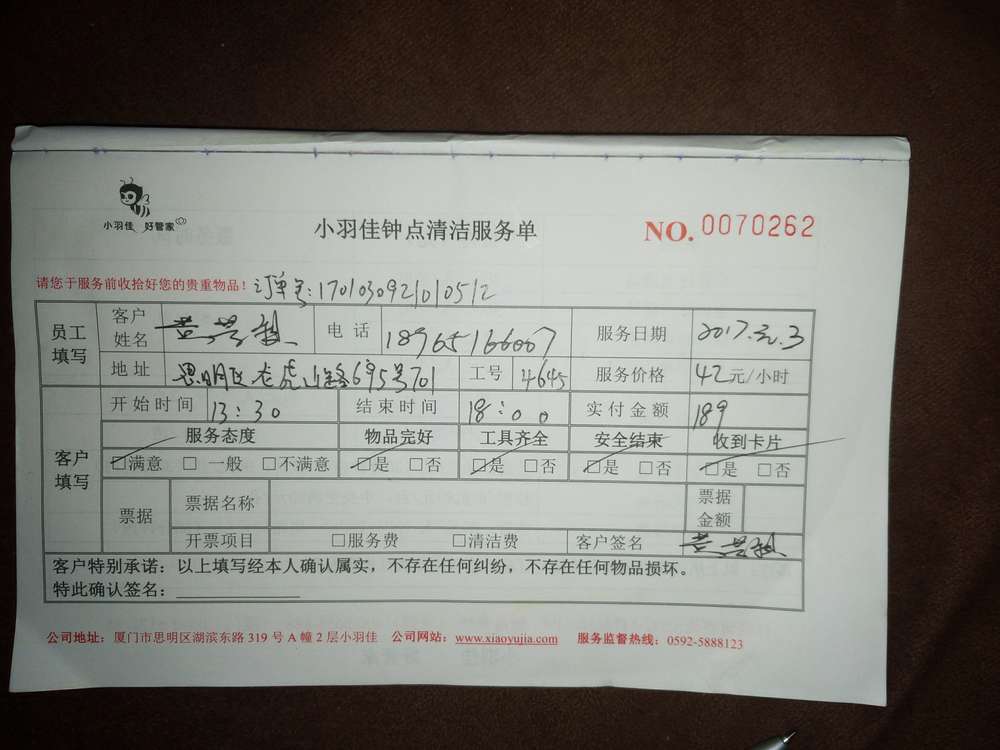 小羽佳 好管家
小羽佳钟点清洁服务单
NO. 0070262
请您于服务前收拾好您的贵重物品！订单号:1701030921010512
员工填写 客户姓名 电 话 18965166007 服务日期 2017.元.3
地 址 思明区老虎山路695号701 工号 4645 服务价格 42元/小时
客户填写 开始时间 13:30 结束时间 18:00 实付金额 189
服务态度 物品完好 工具齐全 安全结束 收到卡片
□满意 □ 一般 □不满意 □是 □否 □是 □否 □是 □否 □是 □否
票据 票据名称 票据金额
开票项目 □服务费 □清洁费 客户签名
客户特别承诺：以上填写经本人确认属实，不存在任何纠纷，不存在任何物品损坏。
特此确认签名：
公司地址：厦门市思明区湖滨东路 319 号 A 幢 2 层小羽佳 公司网站：www.xiaoyujia.com 服务监督热线：0592-5888123